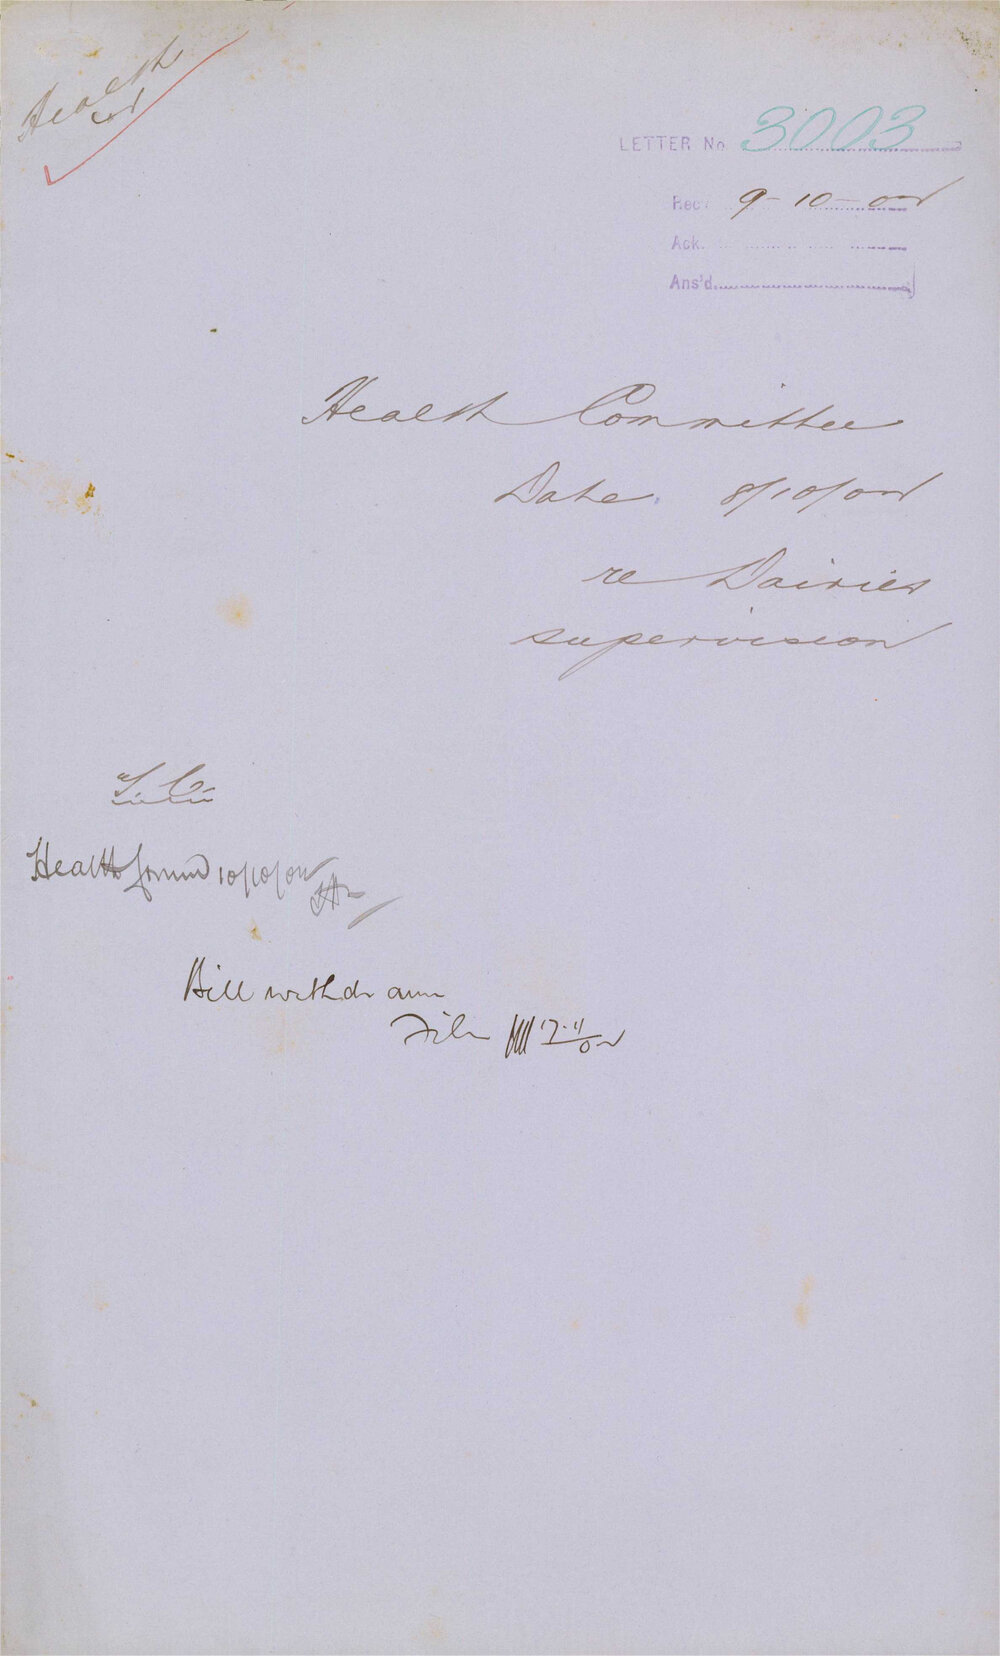 Health
LETTER No 3003
Rec. 9-10-02
Ack.
Ans'd.
Health Committee
Date. 8/10/02
re Dairies
supervision
T.C.
Health Comm 10/10/02
Bill withdrawn
File 17.11/02